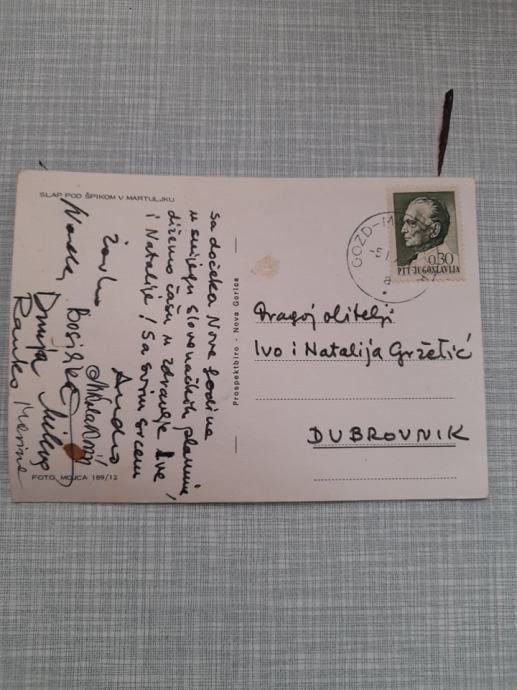 SLAP POD ŠPIKOM V MARTULJKU
Sa dočeka Nove Godine
u snijegu slovenačkih planina,
dižemo čašu u zdravlje Ive
i Natalije! Sa svim srcem
Žarko
Ranko
FOTO MOJCA 189/12
Prospektbiro - Nova Gorica
GOZD-M
0,30
PTT-JUGOSLAVIJA
Dragoj obitelji
Ivo i Natalija Gržetić
DUBROVNIK